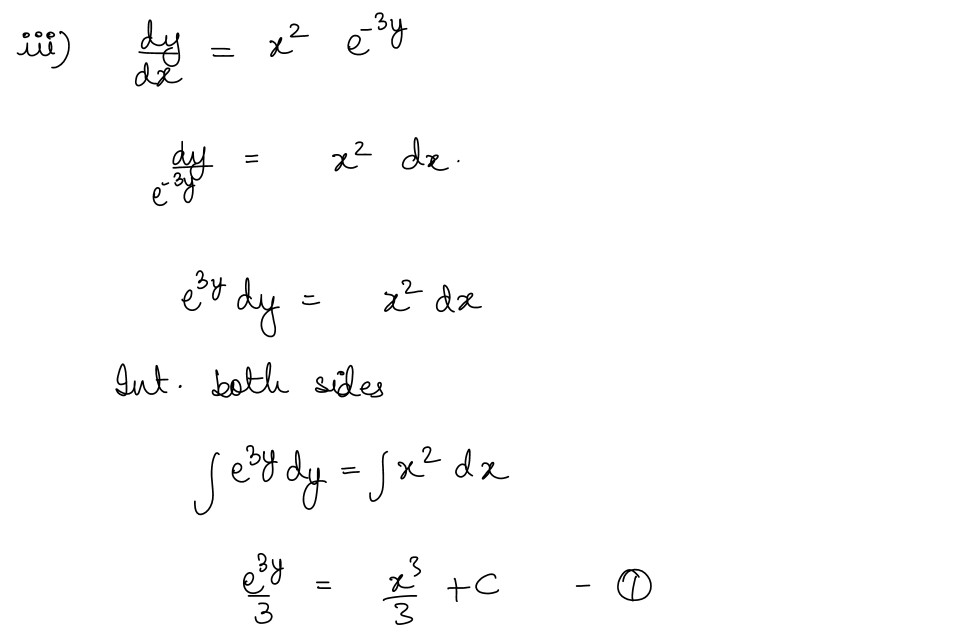 iii) dy/dx = x² e⁻³ʸ
dy/e⁻³ʸ = x² dx.
e³ʸ dy = x² dx
Int. both sides
∫ e³ʸ dy = ∫ x² dx
e³ʸ/3 = x³/3 + C - ①